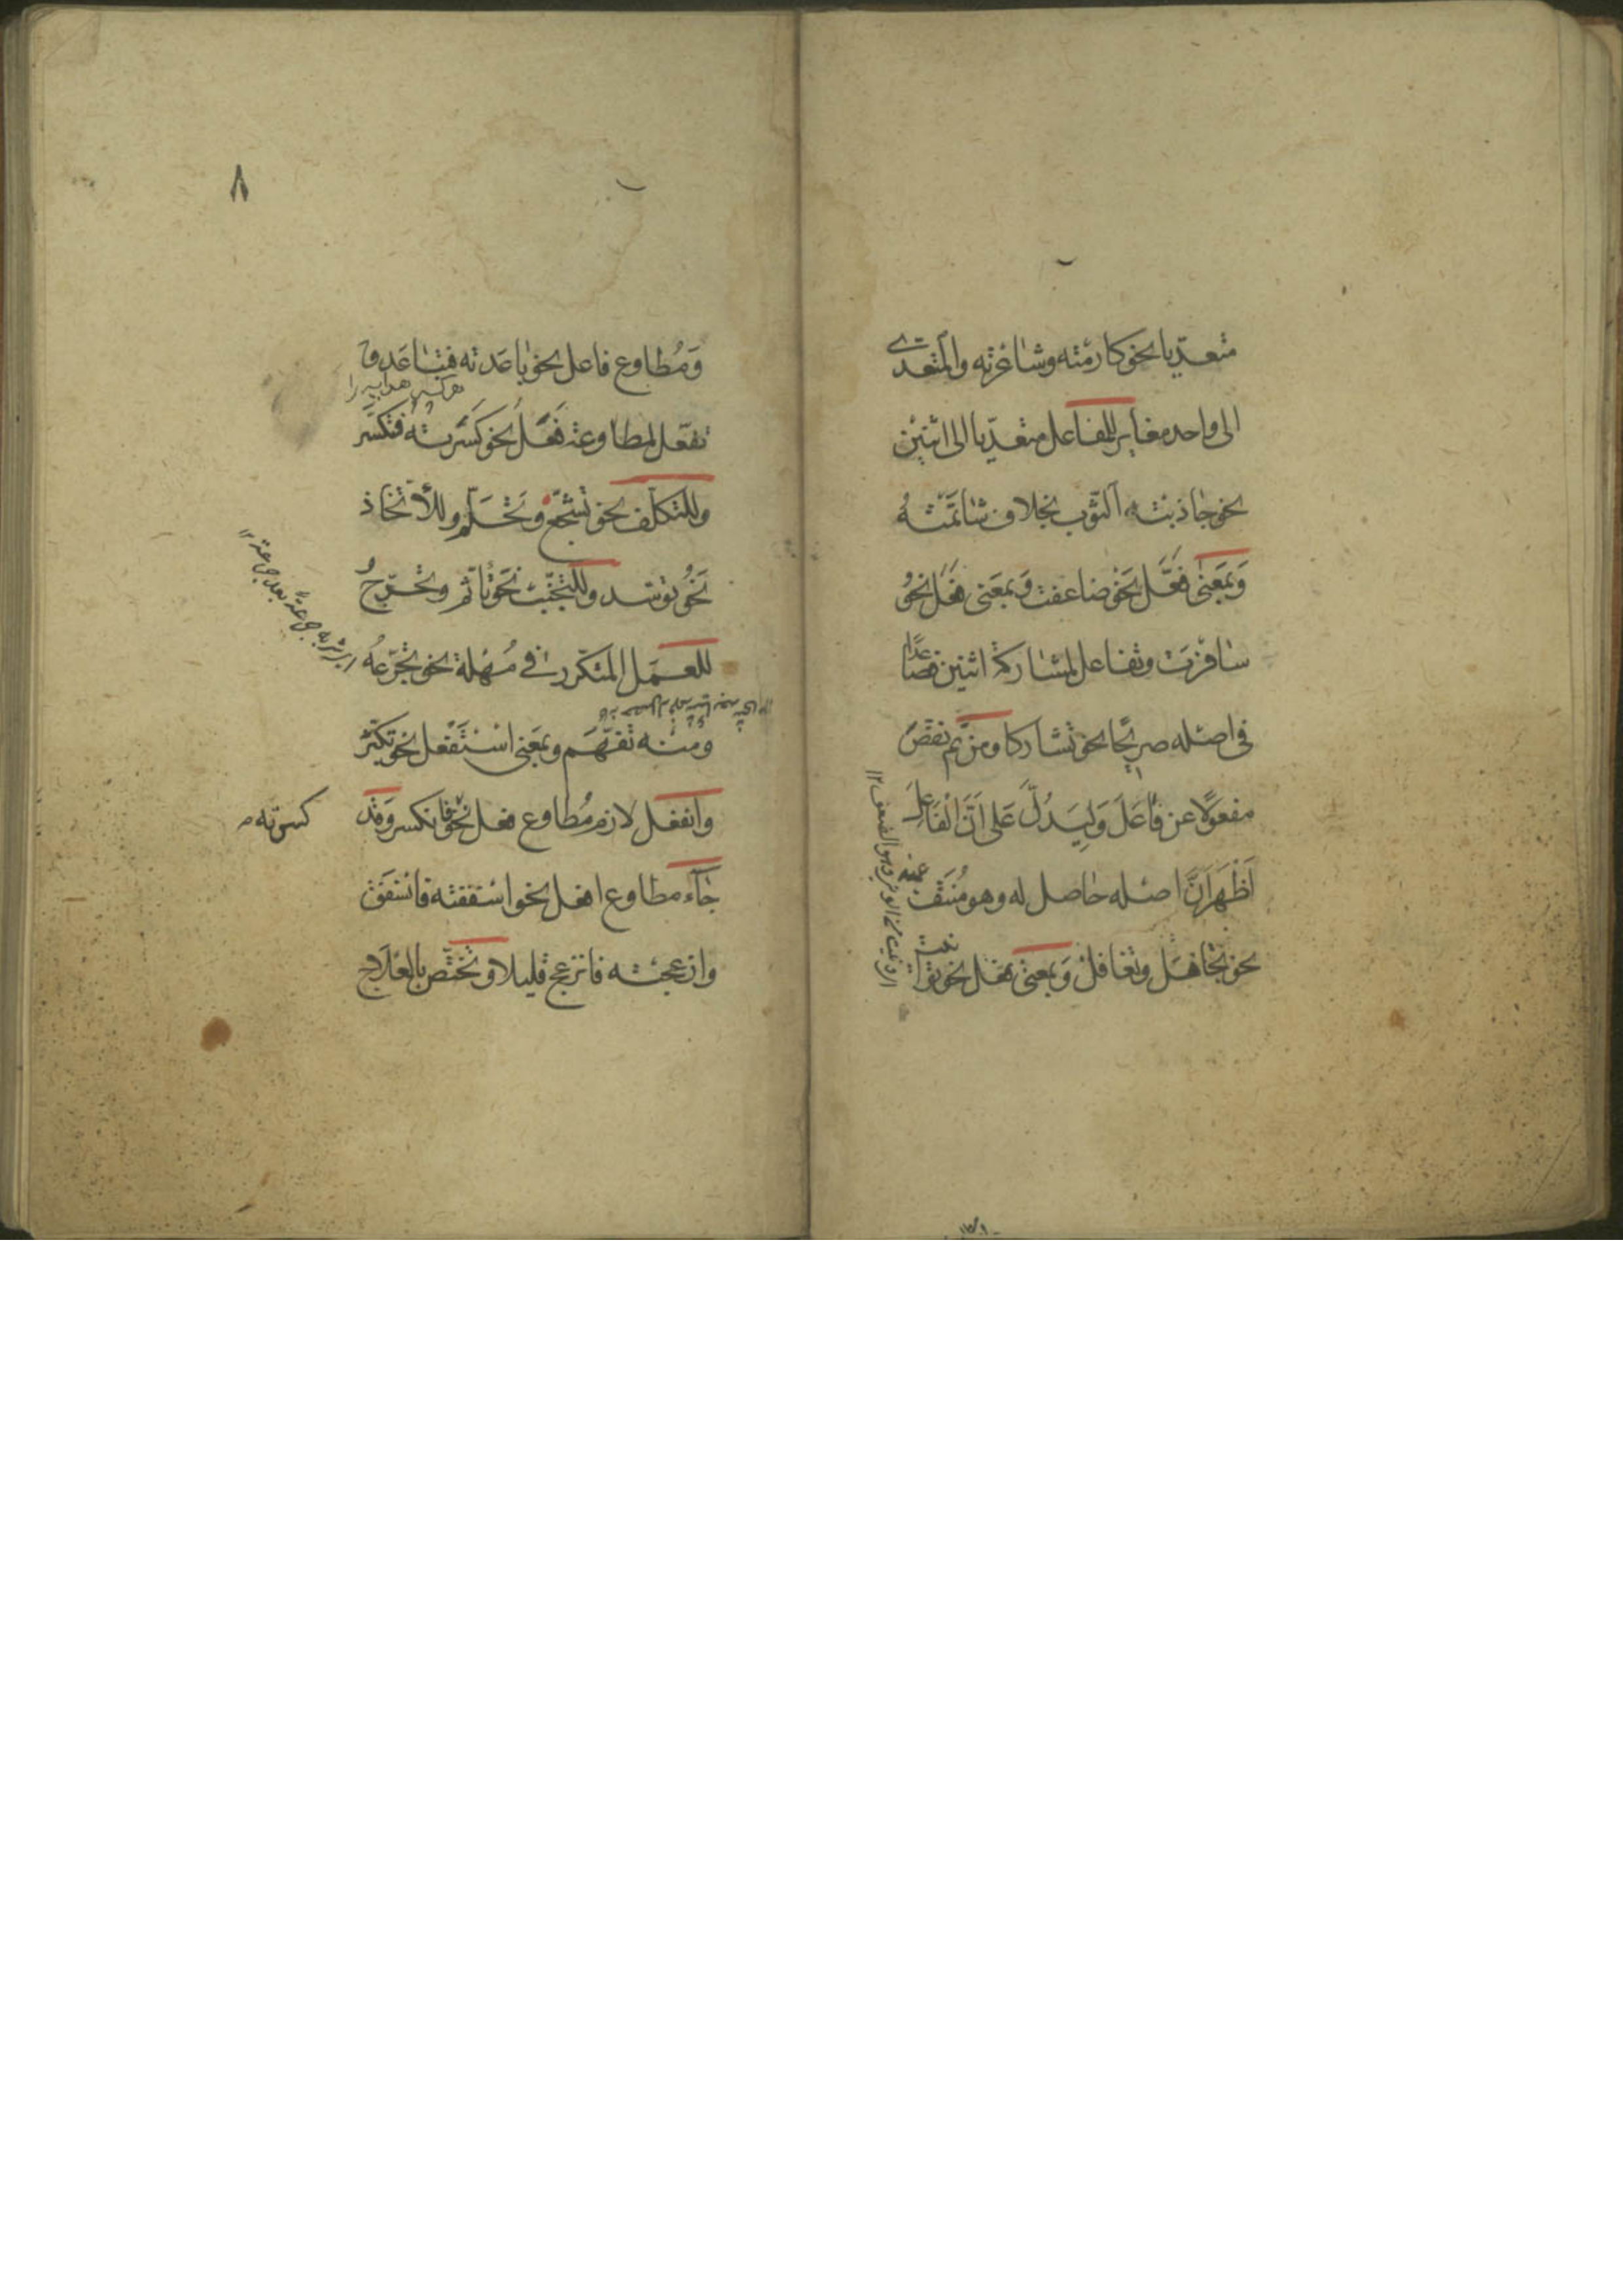 متعدّيا نحو كارمته وشاعرته والمتعدى
الى واحد مغاير للمفاعل متعدّيا الى اثنين
نحو جاذبته الثّوب بخلاف شاتمته
وَبمَعنى فعَّل نَحو ضاعفت وَبمعَنى فعَل نحوُ
سَافرَت وتفاعل لمشاركة اثنين فصَاعدًا
فى اصله صريحًا نحو تشاركا ومن ثم نقص
مفعولًا عن فاعَلَ وَليَدُلّ عَلى اَنّ الْفَاعِلَ
اَظْهَرَ اَنَّ اصله حاصل له وهو مُنتَفٍ عنه
نحو تجاهَل وتغافل وَبمعنى فعل نحو توانيت
٨
وَمُطاوع فاعل نحو باعَدته فتباعَد و
تفعّل لمطاوعة فَعَّل نحو كَسَّرته فتكسّر
وللتكلّف نحو تشجّع وتَحَلّم وللاتّخاذ
نَحوُ توسّد وللتجنّب نَحو تأثّم وتحرّج
للعمَل المتكرر في مُهْلة نحو تجرّعته
اى شربه جرعة بعد جرعة ١٢
ومنه تفهَّم وبمعَنى اسْتَفْعل نحو تكبّر
وانفعل لازم مُطاوع فعل نحو فانكسر وَقد
كسرته
جَآء مطاوع افعل نحو اسفقته فانسفق
وازعجته فانزعج قليلا وتختّص بالعلاج